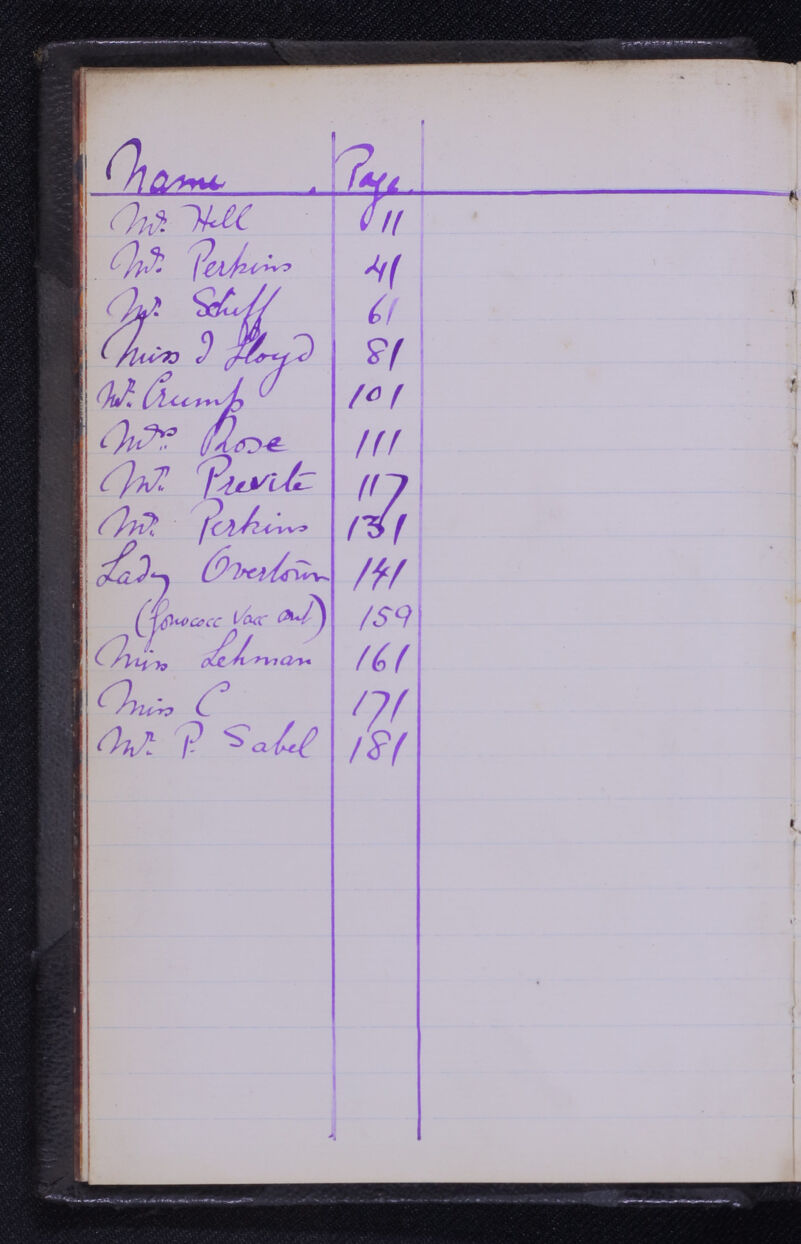 Name. Page.
Mr. Hill 11
Mr. Perkins 41
Mr. Schiff 61
Miss D Lloyd 81
Mr. Crump 101
Mrs. Rose 111
Mr. Previté 117
Mr. Perkins 131
Lady Overtoun 141
(Gonococc Vacc) 159
Miss Lehman 161
Miss C 171
Mr. P. Sabel 181